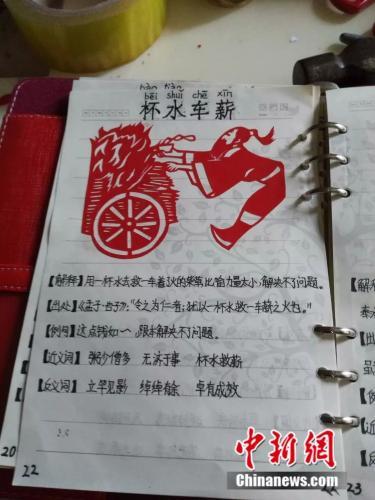 bēi shuǐ chē xīn
杯水车薪
【解释】用一杯水去救一车着火的柴草,比喻力量太小,解决不了问题。
【出处】《孟子·告子》:“今之为仁者,犹以一杯水救一车薪之火也。”
【例句】这点钱如~~,根本解决不了问题。
【近义词】粥少僧多 无济于事 杯水救薪
【反义词】立竿见影 绰绰有余 卓有成效
20
22
23
中新网
www.chinanews.com